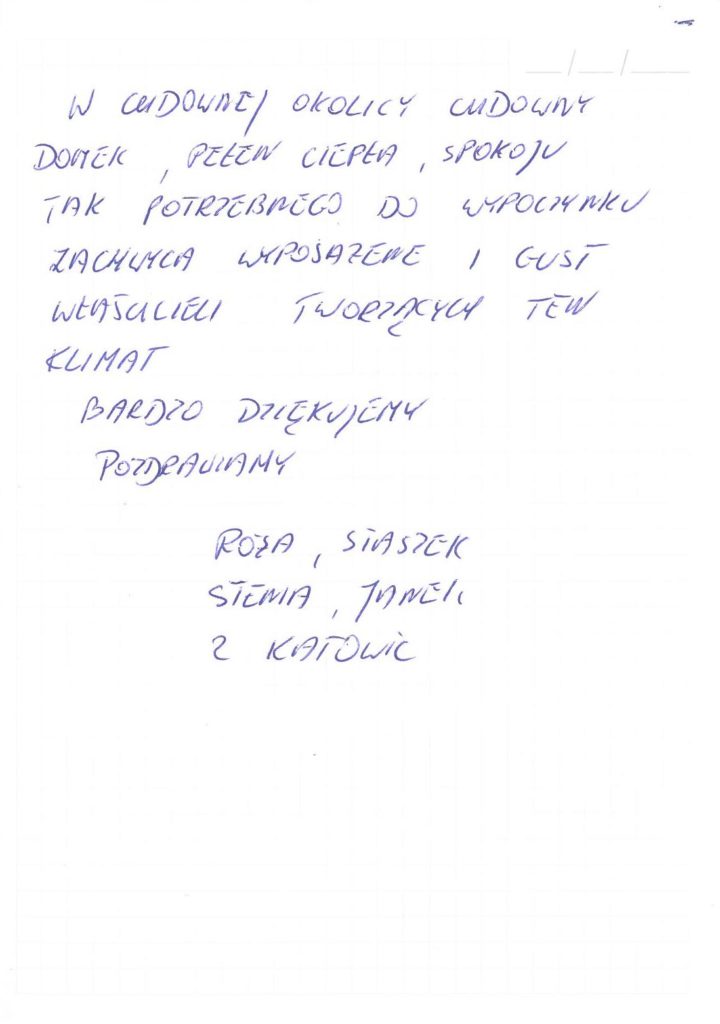 W CUDOWNEJ OKOLICY CUDOWNY
DOMEK , PEŁEN CIEPŁA , SPOKOJU
TAK POTRZEBNEGO DO WYPOCZYNKU
ZACHWYCA WYPOSAŻENIE I GUST
WŁAŚCICIELI TWORZĄCYCH TEN
KLIMAT
BARDZO DZIĘKUJEMY
POZDRAWIAMY
RÓŻA , STASZEK
STENIA , JANEK
Z KATOWIC